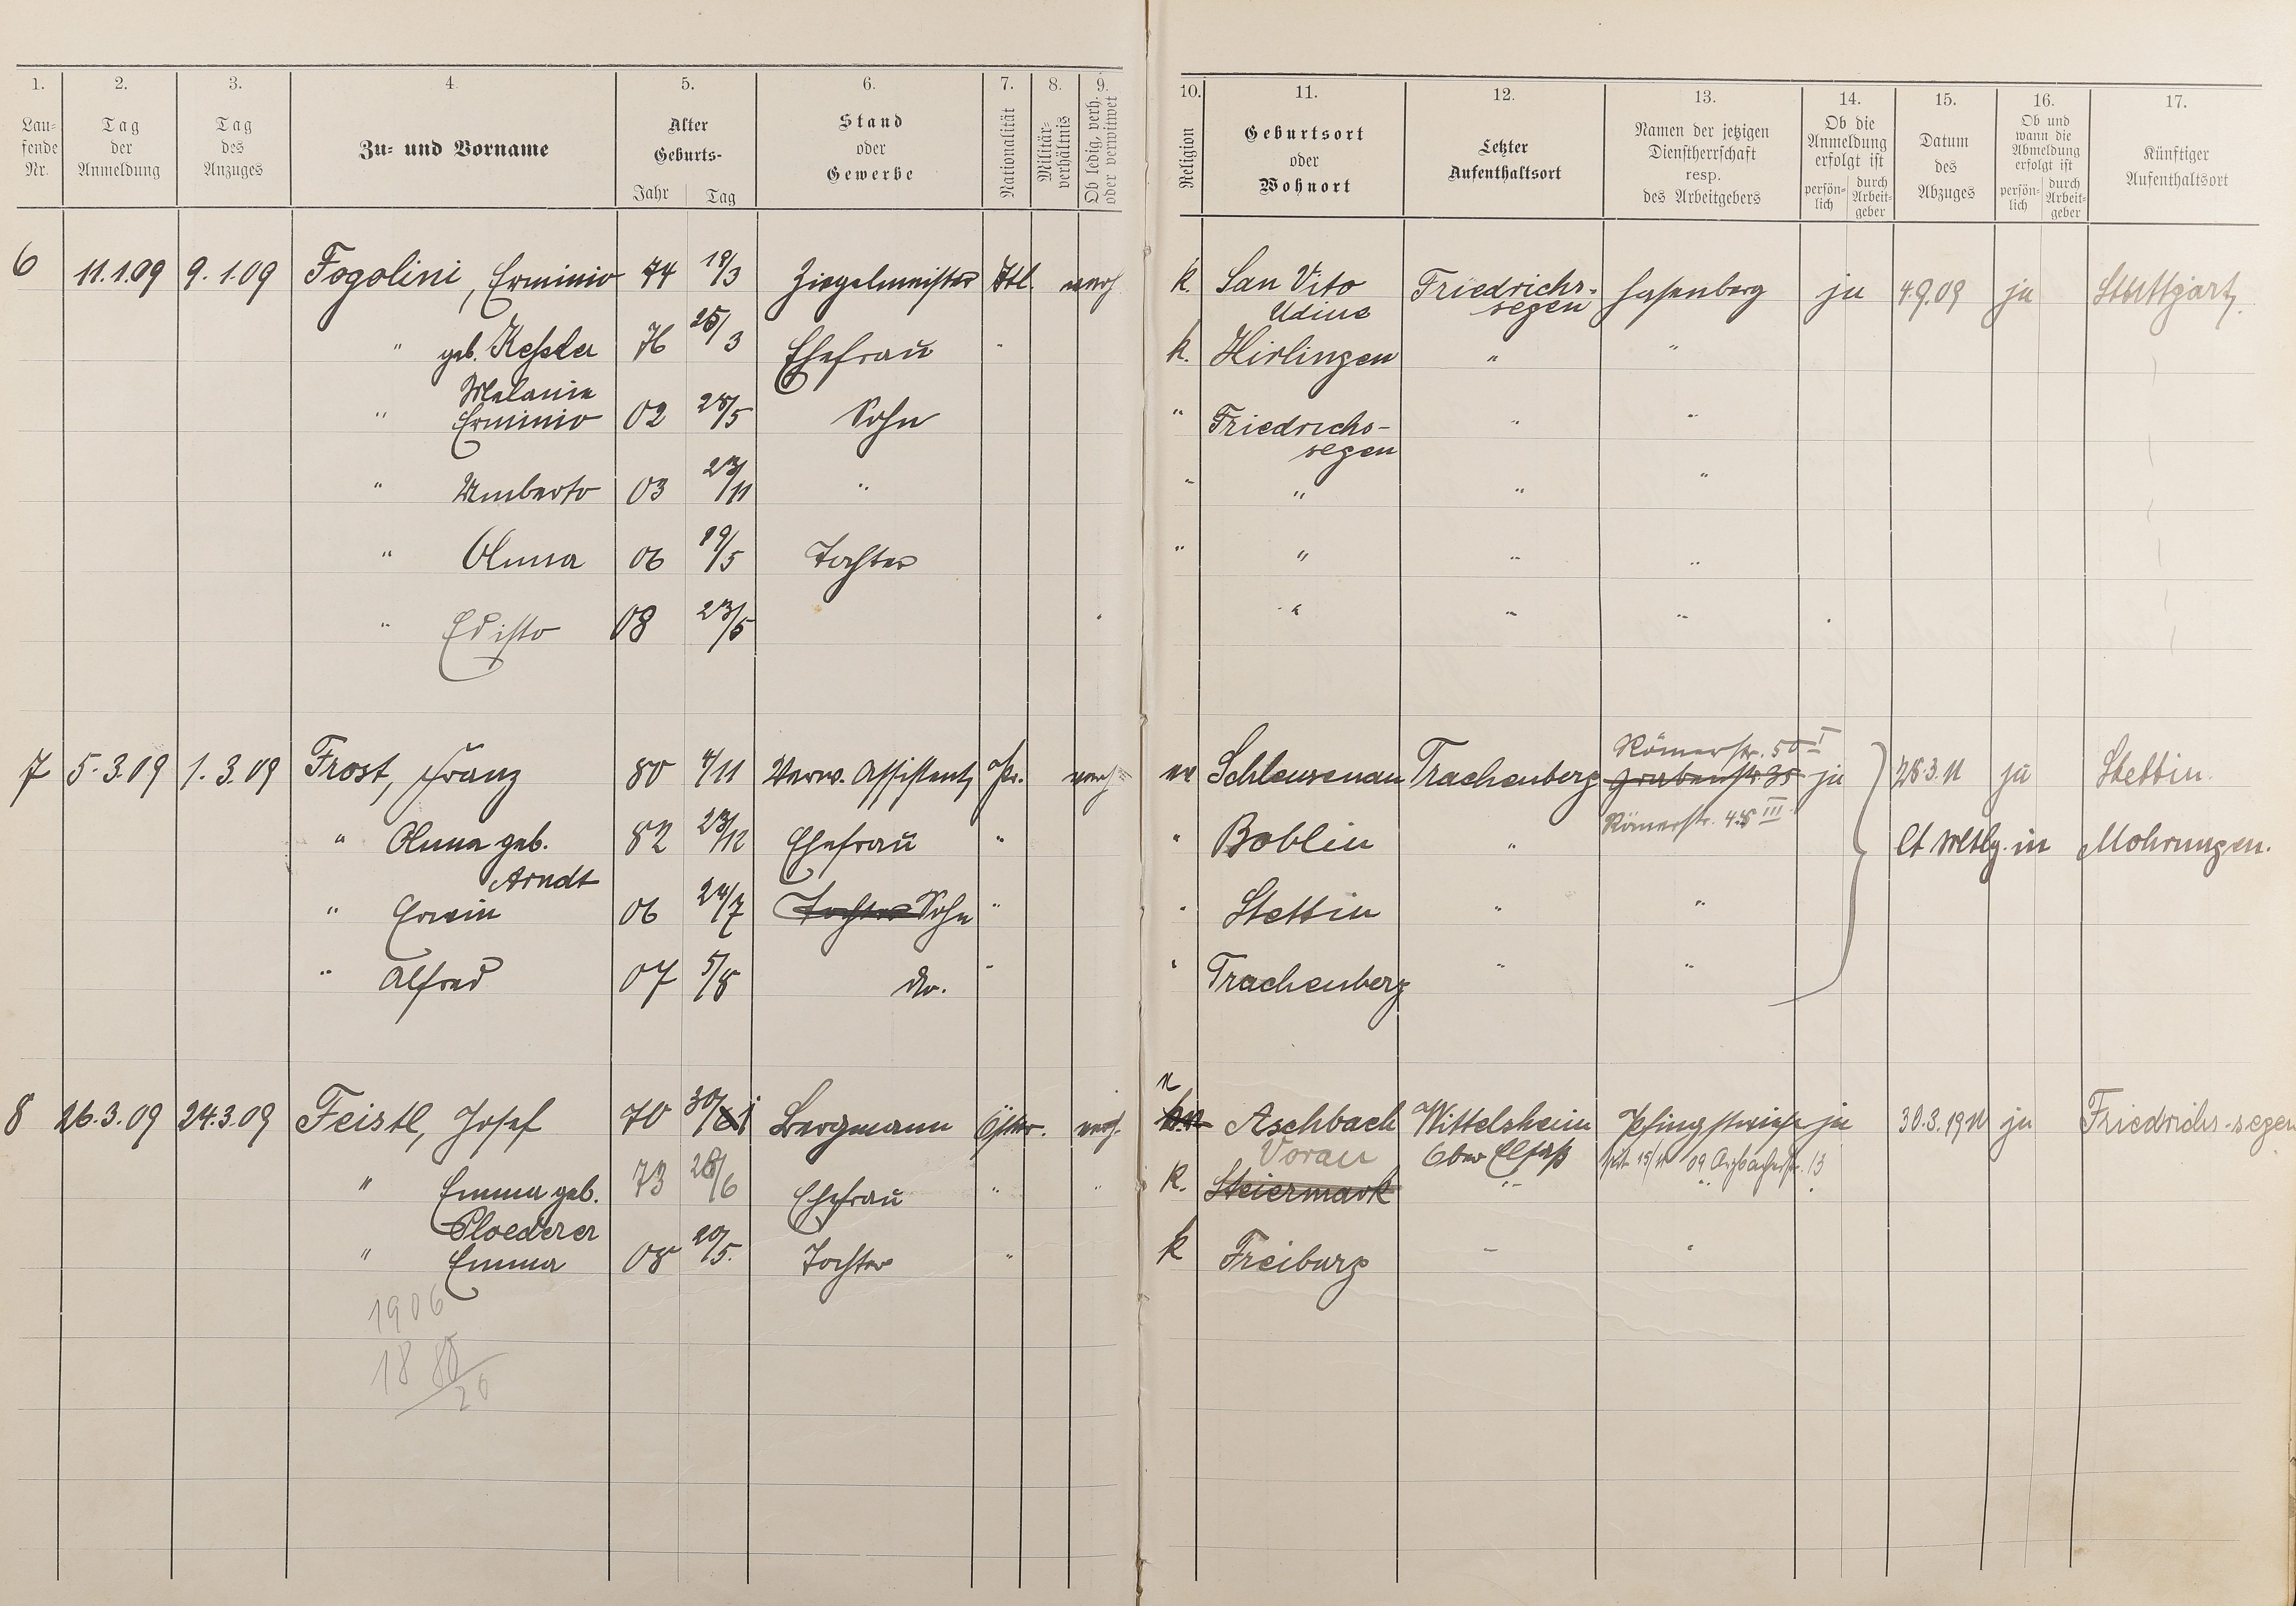 1. 2. 3. 4. 5. 6. 7. 8. 9. 10. 11. 12. 13. 14. 15. 16. 17.
Lau-fende Nr.
Tag der Anmeldung
Tag des Anzuges
Zu- und Vorname
Alter Geburts- Jahr Tag
Stand oder Gewerbe
Nationalität
Militär-verhältnis
Ob ledig, verh. oder verwitwet
Religion
Geburtsort oder Wohnort
Letzter Aufenthaltsort
Namen der jetzigen Dienstherrschaft resp. des Arbeitgebers
Ob die Anmeldung erfolgt ist persön-lich durch Arbeit-geber
Datum des Abzuges
Ob und wann die Abmeldung erfolgt ist persön-lich durch Arbeit-geber
Künftiger Aufenthaltsort
6 11.1.09 9.1.09 Fogolini, Erminio 74 19/3 Ziegelmeister Itl. verh k. San Vito Friedrichs- Hasenberg ja 4.9.09 ja Stuttgart
Udine segen
" geb. Kessler 76 25/3 Ehefrau " k. Hirlingen " "
Melanie
" Erminio 02 28/5 Sohn " Friedrichs- " "
segen
" Umberto 03 23/11 " " " " "
" Anna 06 19/5 Tochter " " " "
" Edisto 08 23/5 " " "
Römerstr. 50 I
7 5.3.09 1.3.09 Frost, Franz 80 4/11 Verw. Assistent Pr. verh ev Schleusenau Trachenberg Grabenstr. 35 ja 28.3.11 ja Stettin.
Römerstr. 48 III
" Anna geb. 82 23/12 Ehefrau " " Boblin " lt Mtlg. in Mohrungen.
Arndt
" Erwin 06 24/7 Tochter Sohn " " Stettin " "
" Alfred 07 5/8 do. " " Trachenberg " "
8 26.3.09 24.3.09 Feistl, Josef 70 30/1 Bergmann Öster. verh. k Aschbach Wittelsheim Pfingstwiese ja 30.3.1911 ja Friedrichs-segen
Vorau Ober Elsaß seit 15/11 09 Arzbacherstr. 13
" Emma geb. 73 28/6 Ehefrau " " k. Steiermark " "
Ploederer
" Emma 08 20/5. Tochter " k Freiburg " "
1906
1880
26